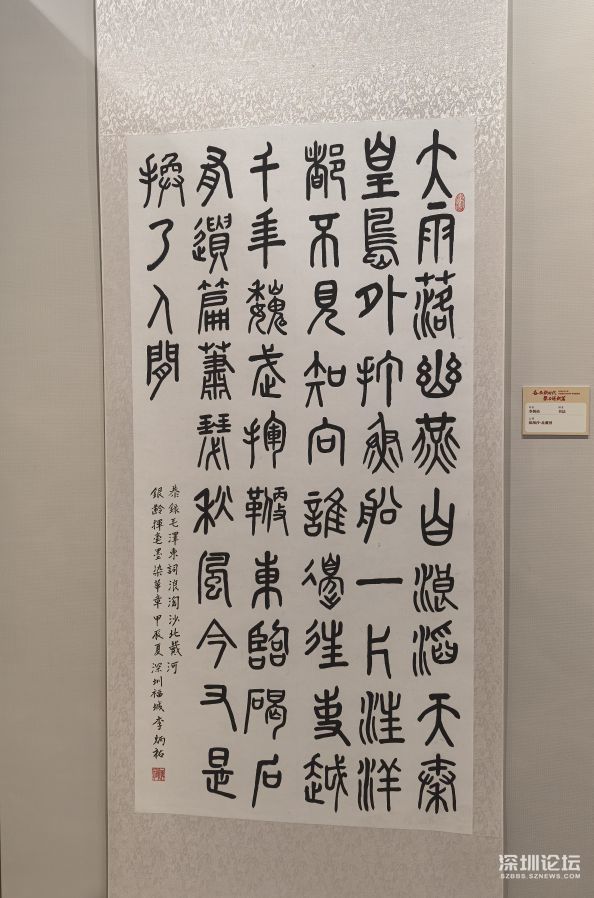 大雨落幽燕白浪滔天秦
皇島外打魚船一片汪洋
都不見知向誰邊往事越
千年魏武揮鞭東臨碣石
有遺篇蕭瑟秋風今又是
換了人間
恭錄毛澤東詞浪淘沙北戴河
銀齡揮毫墨染華章甲辰夏深圳福城李炳祐
书法
浪淘沙·北戴河
深圳论坛
SZBBS.SZNEWS.COM